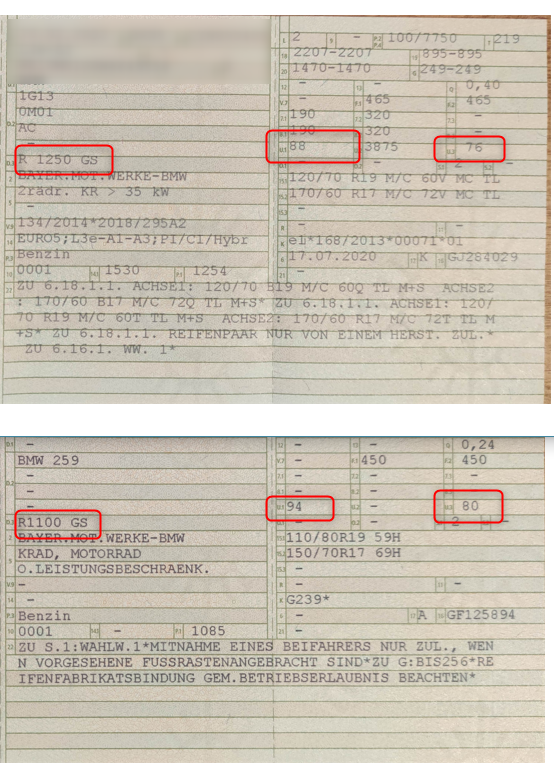 2 - 100/7750 219
2207-2207 895-895
1470-1470 249-249
- - 0,40
1G13 - 465 465
0M01 190 320 -
AC 190 320 -
- 88 3875 76
R 1250 GS - - 2 -
BAYER.MOT.WERKE-BMW 120/70 R19 M/C 60V MC TL
2rädr. KR > 35 kW 170/60 R17 M/C 72V MC TL
- -
134/2014*2018/295A2 - -
EURO5;L3e-A1-A3;PI/CI/Hybr e1*168/2013*00071*01
Benzin 17.07.2020 K GJ284029
0001 1530 1254 -
ZU 6.18.1.1. ACHSE1: 120/70 B19 M/C 60Q TL M+S ACHSE2
: 170/60 B17 M/C 72Q TL M+S* ZU 6.18.1.1. ACHSE1: 120/
70 R19 M/C 60T TL M+S ACHSE2: 170/60 R17 M/C 72T TL M
+S* ZU 6.18.1.1. REIFENPAAR NUR VON EINEM HERST. ZUL.*
ZU 6.16.1. WW. 1*
- - - 0,24
BMW 259 - 450 450
- - - -
- - - -
- 94 - 80
R1100 GS - - 2 -
BAYER.MOT.WERKE-BMW 110/80R19 59H
KRAD, MOTORRAD 150/70R17 69H
O.LEISTUNGSBESCHRAENK. -
- - -
- G239*
Benzin - A GF125894
0001 - 1085 -
ZU S.1:WAHLW.1*MITNAHME EINES BEIFAHRERS NUR ZUL., WEN
N VORGESEHENE FUSSRASTENANGEBRACHT SIND*ZU G:BIS256*RE
IFENFABRIKATSBINDUNG GEM.BETRIEBSERLAUBNIS BEACHTEN*